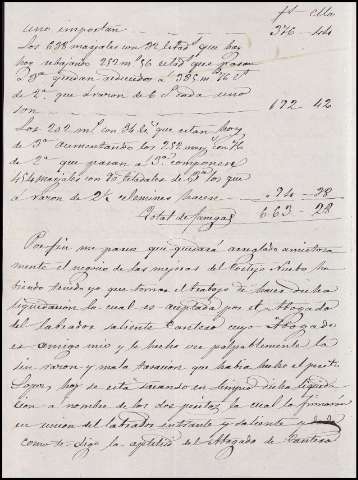 fs. Clls
uno importan 376 - 44
Los 638 marjales con 32 estads. que hay
hoy rebajando 252 ms. 56 estads. que pasan
a 3ª quedan reducidos a 385 ms. 76 es.
de 2ª que a razon de 6 cs. cada uno
son 192 42
Los 202 ms. con 34 es. que estan hoy
de 3ª aumentando los 252 marjs. con 56
de 2ª que pasan a 3ª componen
454 marjales con 90 estadales de 3ª los que
á razon de 2½ celemines hacen 94 - 38
Total de fanegas 663 - 28
Por fin me parece que quedará arreglado amistosa
mente el negocio de las mejoras del Cortijo Nuebo ha
biendo tenido yo que tomar el trabajo de hacer dicha
liquidacion la cual es aceptada por el Abogado
del labrador saliente Cantero cuyo Abogado
es amigo mio y le hecho ver palpablemente la
sin razon y mala tasacion que habia hecho el perito
Lopez, hoy se está sacando en limpio dicha liquida
cion a nombre de los dos peritos la cual la firmaran
en union del labrador entrante y saliente y
como te digo la aceptacion del Abogado de Cantero